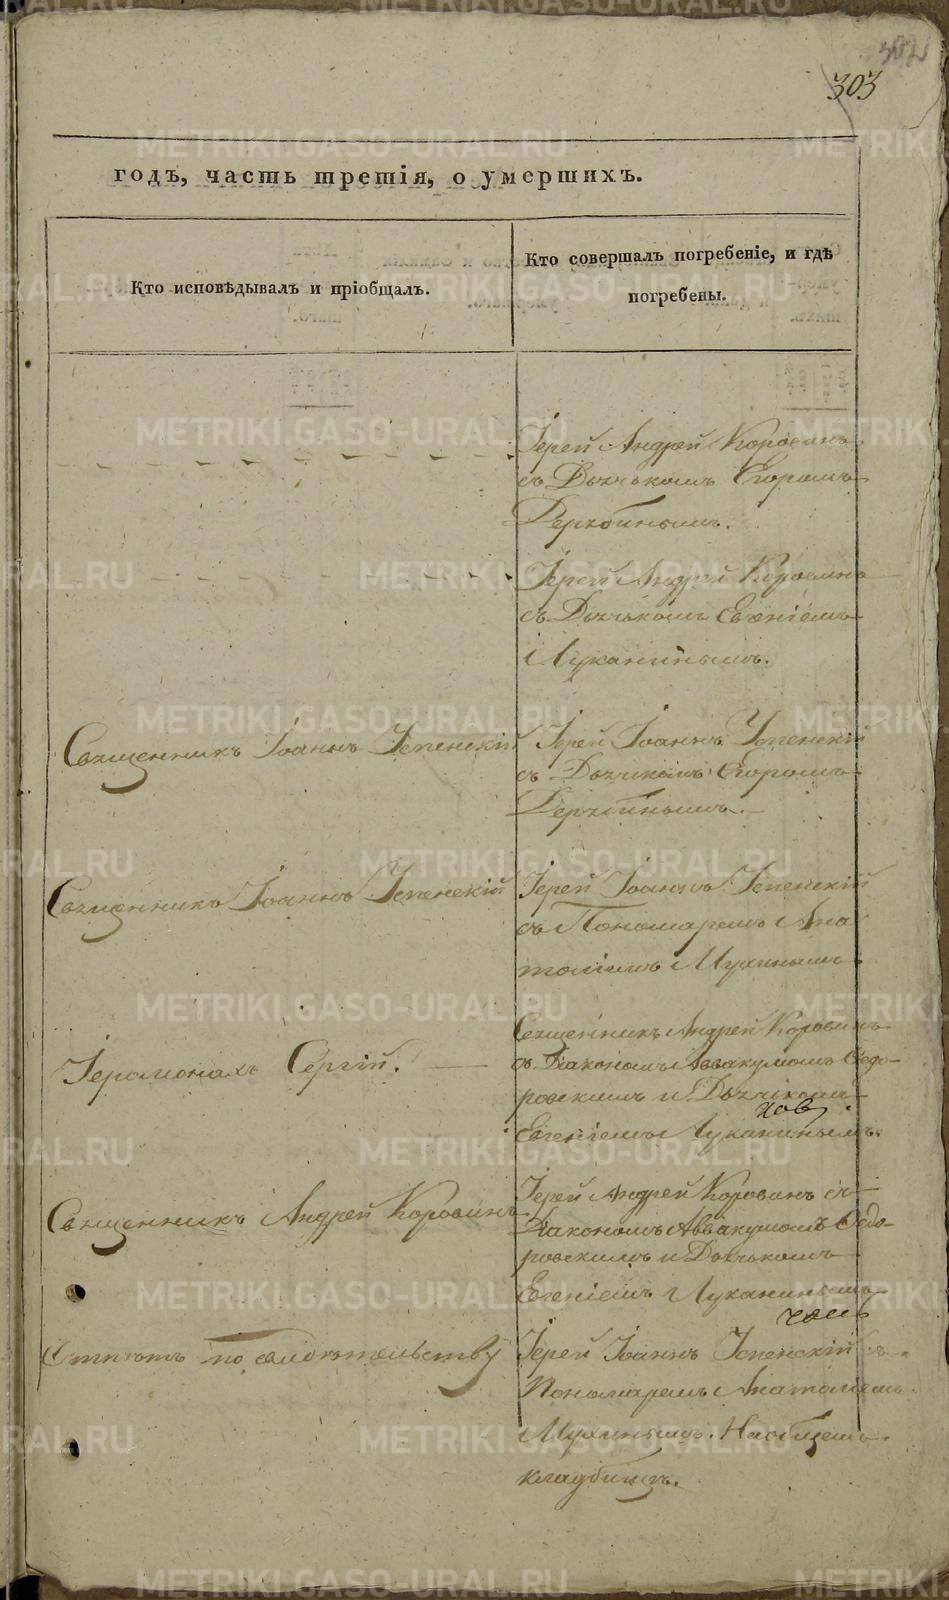 302
303
годъ, часть третія, о умершихъ.
Кто исповѣдывалъ и пріобщалъ.
Кто совершалъ погребеніе, и гдѣ
погребены.
Іерей Андрей Коровинъ
съ Дьячкомъ Егоромъ
Іерей Андрей Коровинъ
съ Дьячкомъ Евгеніемъ
Луканинымъ.
Священникъ Іоаннъ Успенскій
Іерей Іоаннъ Успенскій
съ Дьячкомъ Егоромъ
Священникъ Іоаннъ Успенскій
Іерей Іоаннъ Успенскій
съ Пономаремъ Ана
толіемъ Мухинымъ
Іеромонахъ Сергій.
Священникъ Андрей Коровинъ
съ Діакономъ Аввакумомъ Ѳедо-
ровскимъ и Дьячкомъ
Евгеніемъ Луканинымъ.
Священникъ Андрей Коровинъ
Іерей Андрей Коровинъ съ
Діакономъ Аввакумомъ Ѳедо-
ровскимъ и Дьячкомъ
Евгеніемъ Луканинымъ
Отпѣтъ по
Іерей Іоаннъ Успенскій съ
Пономаремъ Анатоліемъ
Мухинымъ. На общемъ
кладбищѣ.
METRIKI.GASO-URAL.RU